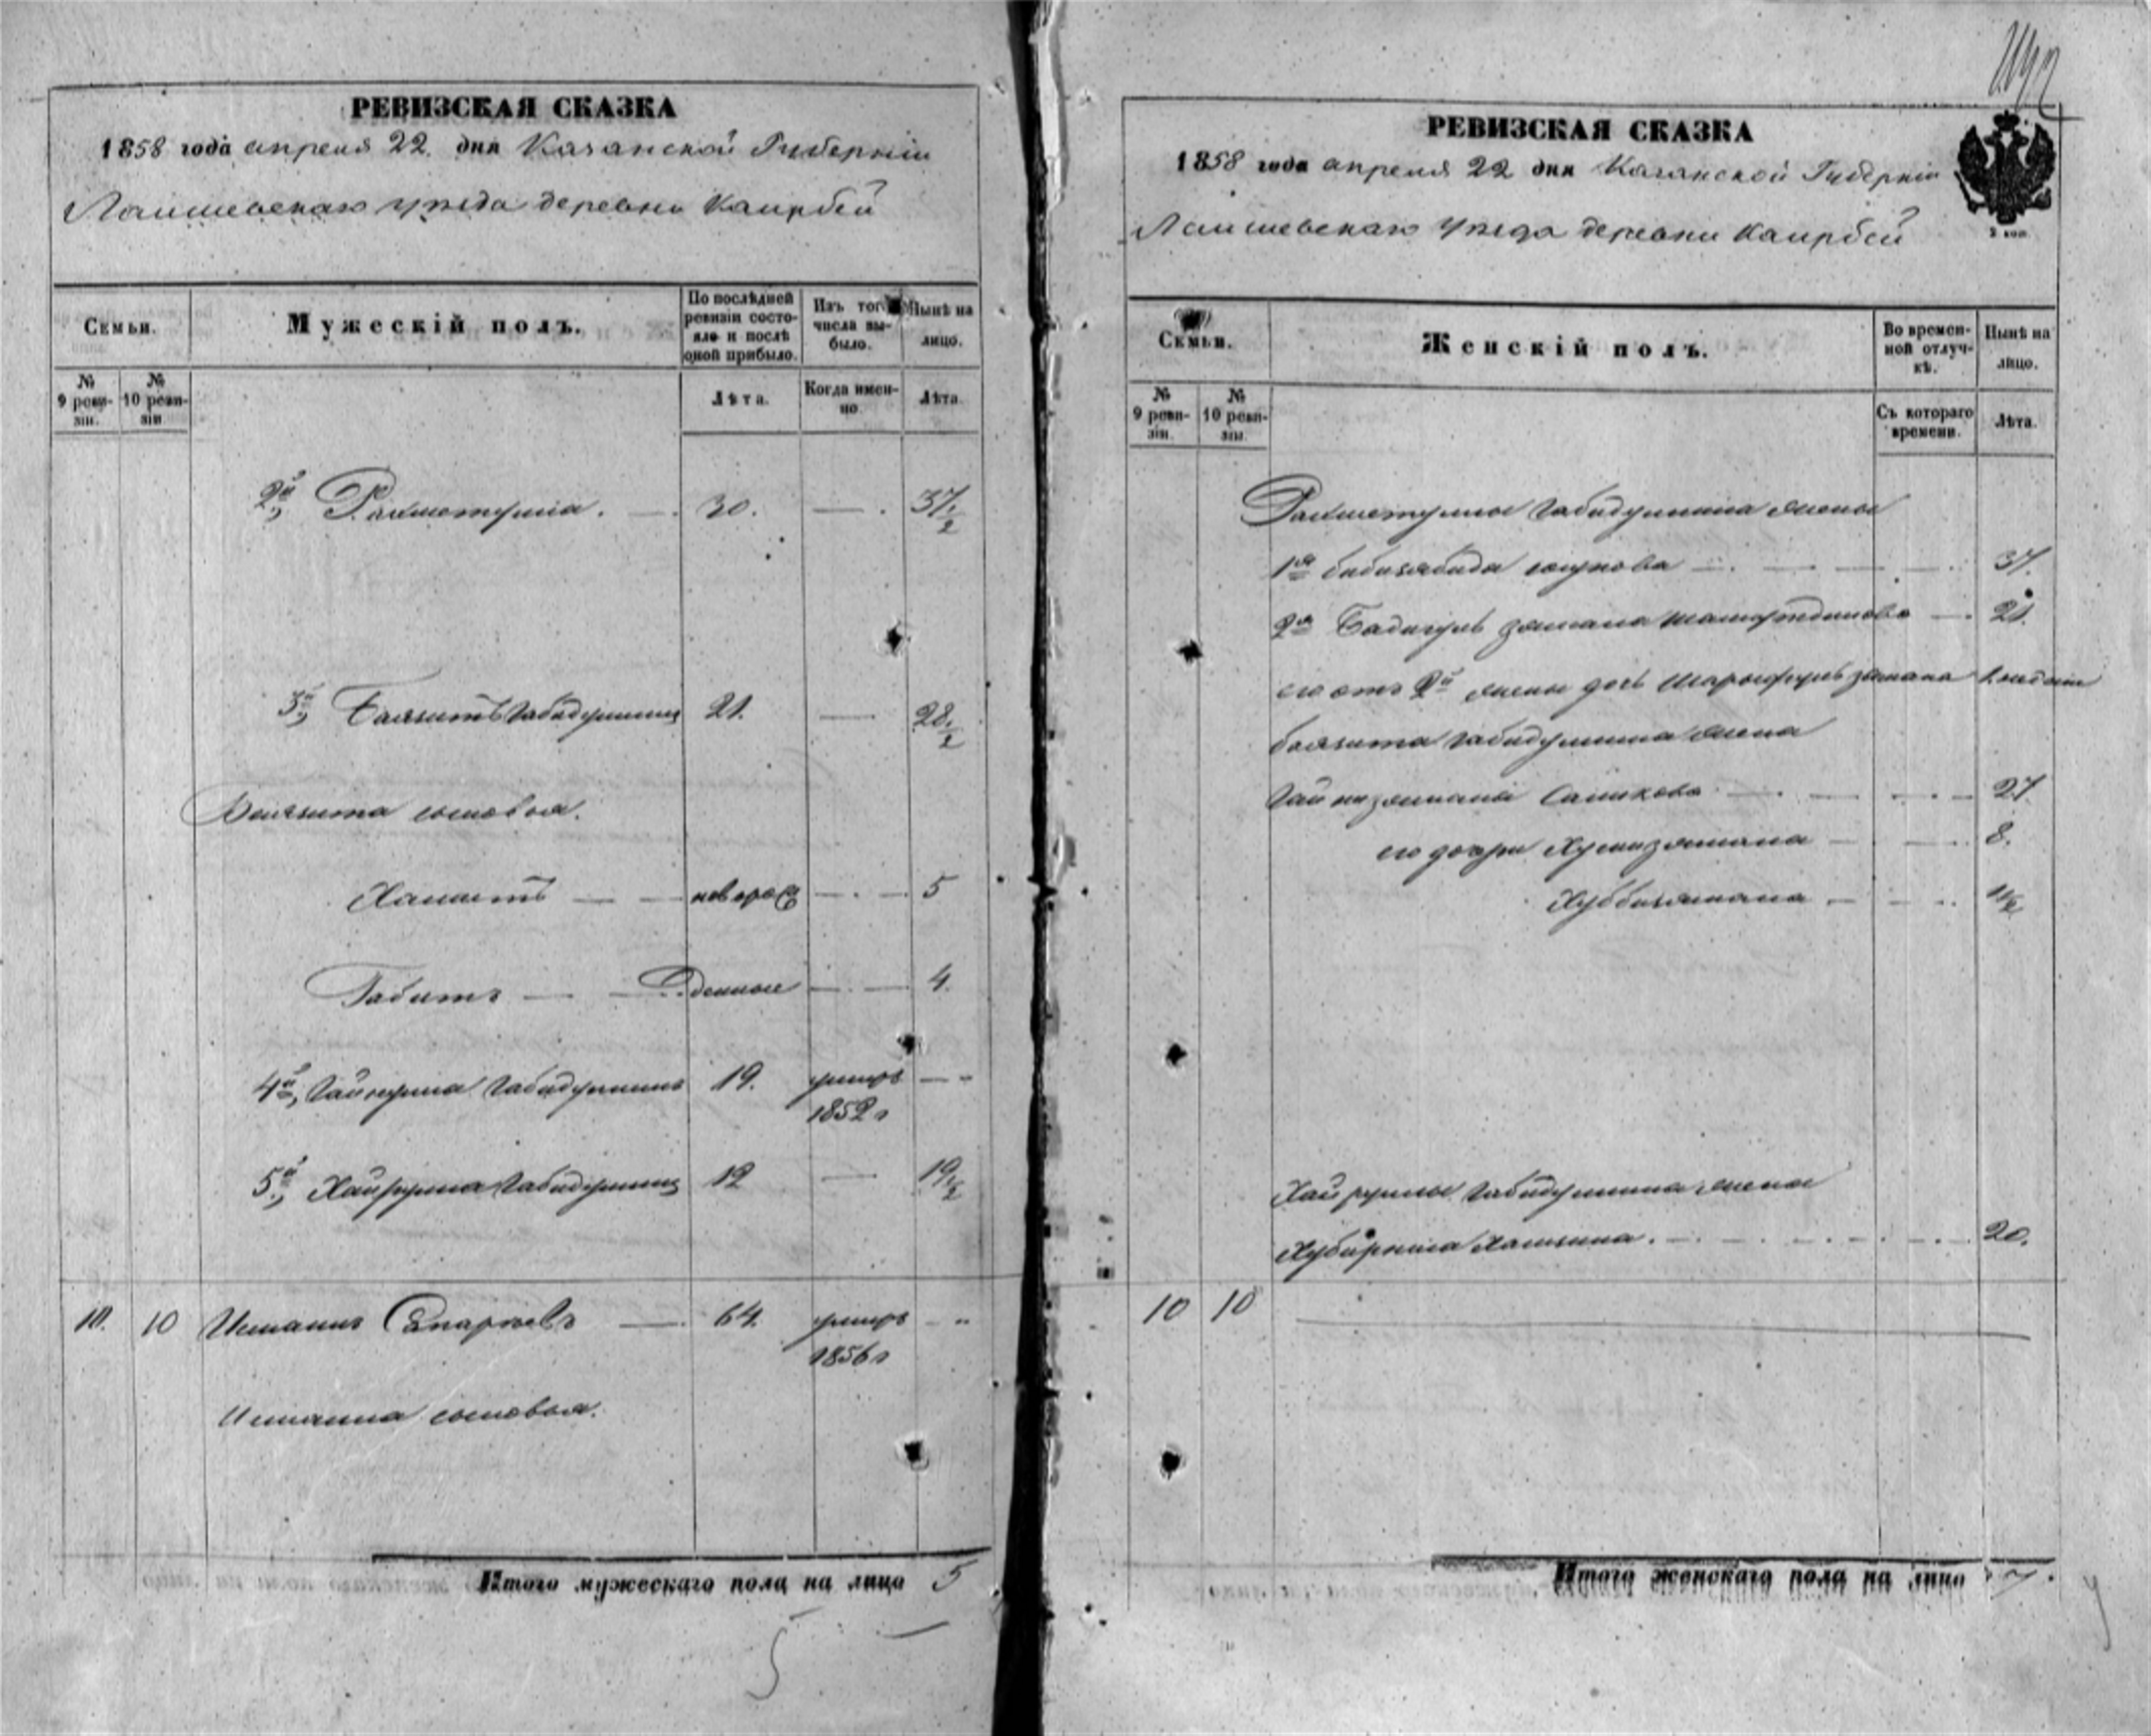 РЕВИЗСКАЯ СКАЗКА
1858 года апреля 22 дня Казанской Губернiи
Лаишевскаго уѣзда деревни Каирбей
Семьи.
Мужескiй полъ.
По послѣдней ревизiи состояло и послѣ оной прибыло.
Изъ того числа выбыло.
Нынѣ на лицо.
№ 9 ревизiи.
№ 10 ревизiи
Лѣта.
Когда именно
Лѣта.
2й, Рахметулла. 30. — 37 1/2
3й, Баязитъ Габидуллинъ 21. — 28 1/2
Баязита сыновья.
Хамитъ — новорож — 5
Габитъ — денные — 4.
4й, Гайнулла Габидуллинъ 19. умеръ — -
1852 г
5й, Хайрулла Габидуллинъ 12 — 19 1/2
10. 10 Исманъ Сапаровъ — 64. умеръ - "
1856 г
Исмана сыновья.
Итого мужескаго пола на лицо 5
5
РЕВИЗСКАЯ СКАЗКА
1858 года апреля 22 дня Казанской Губернiи
Лаишевскаго уѣзда деревни Каирбей
Семьи.
Женскiй полъ.
Во временной отлучкѣ.
Нынѣ на лицо.
№ 9 ревизiи.
№ 10 ревизiи.
Съ котораго времени.
Лѣта.
Рахметуллы Габидуллина жены
1я Бибизябида — 37.
2я Бадигулъ замана — 21.
его отъ 2й жены дочь
Баязита Габидуллина жена
Салихова — 27.
его дочери — 8.
Хуббизямана — 1 1/2
Хайруллы Габидуллина жена
— 20.
10 10
Итого женскаго пола на лицо 7.